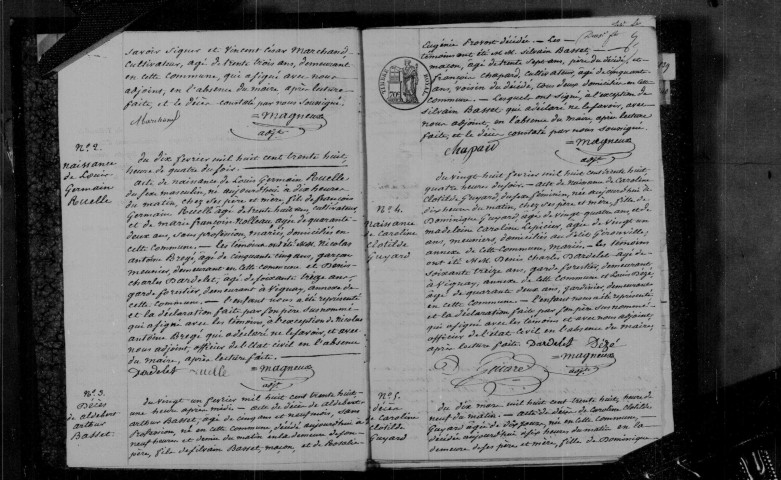 savoir signer et Vincent César Marchand
cultivateur, agé de trente trois ans, demeurant
en cette commune, qui a signé avec nous
adjoint, en l'absence du maire après lecture
faite, et le décès constaté par nous soussigné.
Marchand
= Magneux
adjt
N.º 2.
naissance
de Louis
Germain
Ruelle
du dix février mil huit cent trente huit,
heure de quatre du soir.
Acte de naissance de Louis Germain Ruelle
du sexe masculin, né aujourd'hui à dix heures
du matin, chez ses père et mère, fils de françois
Germain Ruelle agé de trente huit ans cultivateur,
et de marie françoise Nolleau, agée de quarante
deux ans, sans profession, mariés, domiciliés en
cette commune. — les témoins ont été M.M. Nicolas
antoine Brégé, agé de cinquante cinq ans, garçon
meunier, demeurant en cette commune et Denis
charles Dardelet, agé de soixante treize ans,
garde forestier, demeurant à Vignay, annexe de
cette commune. — l'enfant nous a été représenté
et la déclaration faite par son père susnommé
qui a signé avec les témoins, à l'exception de Nicolas
antoine Brégé qui a déclaré ne le savoir, et avec
nous adjoint, officier de l'état civil en l'absence
du maire, après lecture faite.
Dardelet Ruelle = magneux
adjt
N.º 3.
Décès
de aldebert
arthur
Basset.
du vingt-un février mil huit cent trente huit,
une heure après midi. — acte de décès de aldebert
arthur Basset, agé de cinq ans et neuf mois, sans
Profession, né en cette commune, décédé aujourd'hui à
neuf heures et demie du matin en la demeure de son
père, fils de silvain Basset, maçon, et de Rosalie
Eugénie Provost décédée. — Les
témoins ont été M.M. Silvain Basset,
maçon, agé de trente sept ans, père du décédé, et
françois Chapard, cultivateur, agé de cinquante
ans, voisin du décédé, tous deux domiciliés en cette
commune. — Lesquels ont signé, à l'exception de
Silvain Basset qui a déclaré ne le savoir, avec
nous adjoint, en l'absence du maire, après lecture
faite, et le décès constaté par nous soussigné.
Chapard = magneux
adjt
N.º 4.
Naissance
de Caroline
Clotilde
Guyard
du vingt huit février mil huit cent trente huit,
quatre heures du soir. — acte de naissance de Caroline
Clotilde Guyard, du sexe féminin, née aujourd'hui
dix heures du matin, chez ses père et mère, fille de
Dominique Guyard, agé de vingt quatre ans, et de
madeleine Caroline Lepicier, agée de vingt un
ans, meuniers, domiciliés au
annexe de cette commune, mariés. — Les témoins
ont été M.M. Denis Charles Dardelet agé de
soixante treize ans, garde forestier, demeurant
à Vignay, annexe de cette commune et Louis Dizé,
agé de quarante deux ans, jardinier demeurant
en cette commune. — l'enfant nous a été représenté
et la déclaration faite par son père susnommé
qui a signé avec les témoins et avec nous adjoint,
officier de l'état civil en l'absence du maire,
après lecture faite. Dardelet Dizé
= magneux
adjt
N.º 5.
décès
de Caroline
Clotilde
Guyard
du dix mars mil huit cent trente huit, heure de
neuf du matin. — acte de décès de Caroline Clotilde
Guyard agée de dix jours, née en cette commune,
décédée aujourd'hui à six heures du matin en la
demeure de ses père et mère, fille de Dominique